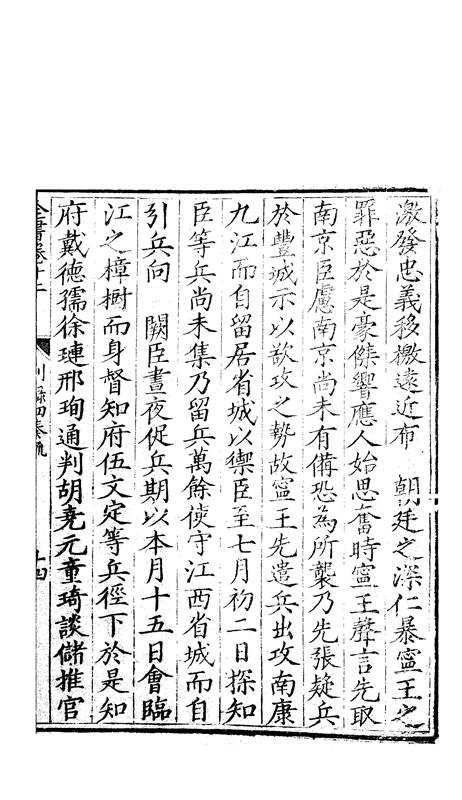 激發忠義移檄遠近布　朝廷之深仁暴寧王之
罪惡於是豪傑響應人始思奮時寧王聲言先取
南京臣慮南京尚未有備恐為所襲乃先張疑兵
於豐城示以欲攻之勢故寧王先遣兵出攻南康
九江而自留居省城以禦臣至七月初二日探知
臣等兵尚未集乃留兵萬餘使守江西省城而自
引兵向　闕臣晝夜促兵期以本月十五日會臨
江之樟樹而身督知府伍文定等兵徑下於是知
府戴德孺徐璉邢珣通判胡堯元童琦談儲推官
全書卷十二　別錄四奏疏　十四